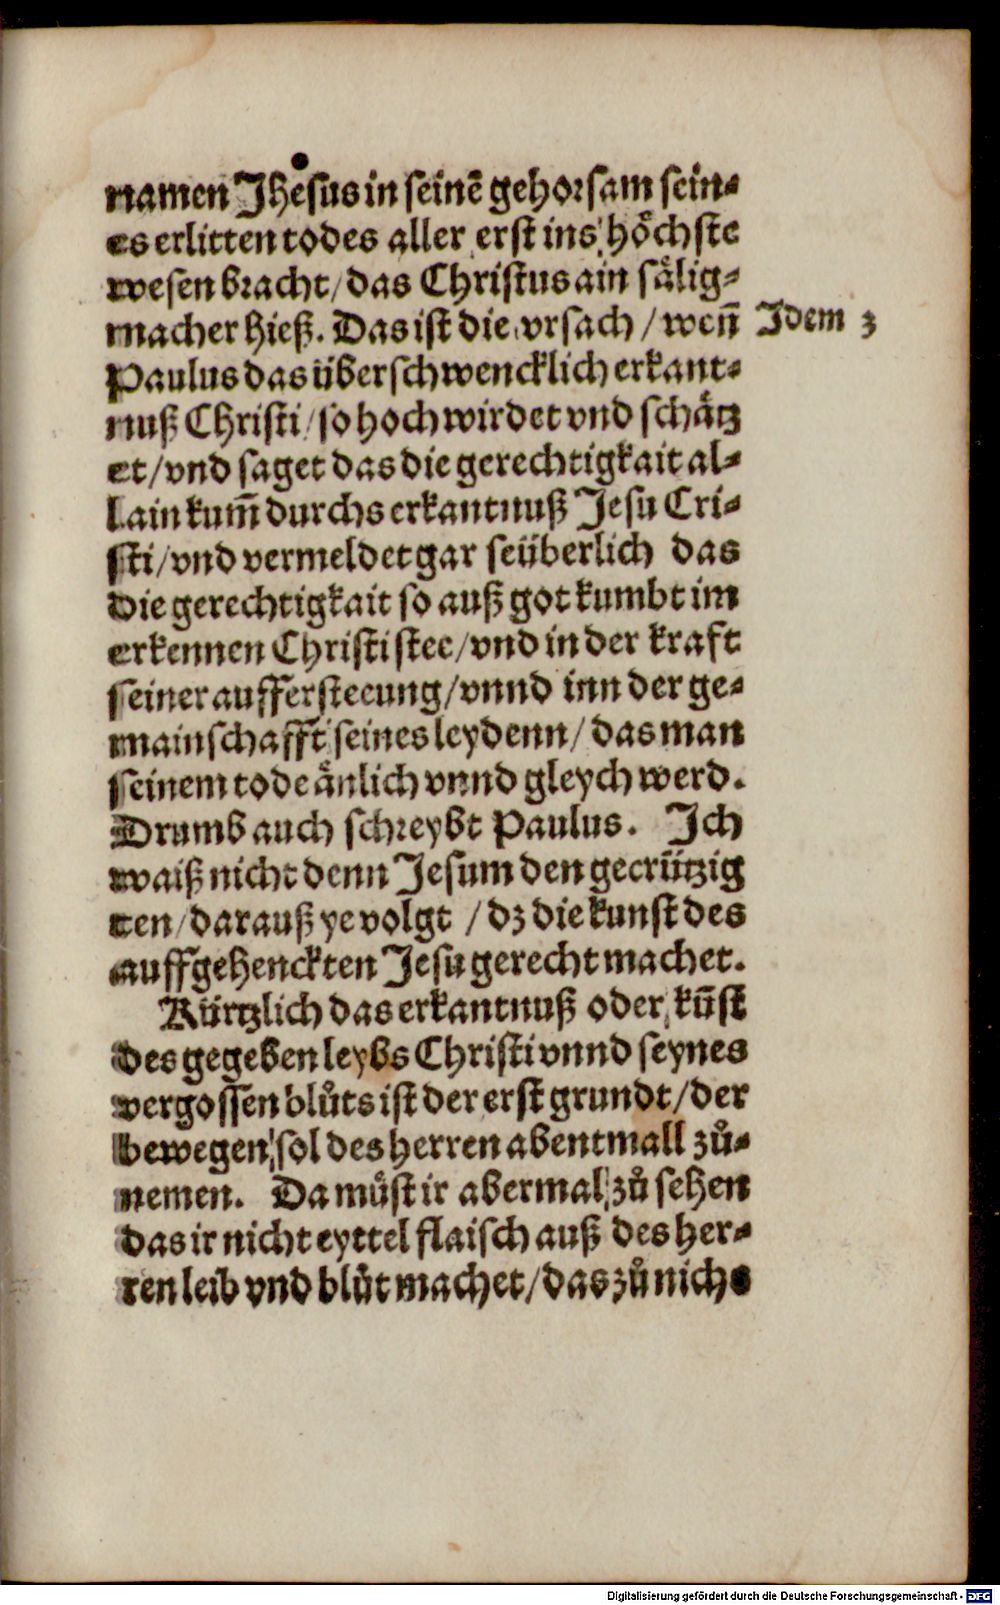 namen Jhesus in seinē gehorsam sein-
es erlitten todes aller erst ins höchste
wesen bracht/ das Christus ain sälig-
macher hieß. Das ist die vrsach / weñ
Idem 3
Paulus das überschwencklich erkant-
nuß Christi/ so hoch wirdet vnd schätz
et/ vnd saget das die gerechtigkait al-
lain kum̄ durchs erkantnuß Jesu Cri-
sti/ vnd vermeldet gar seüberlich das
die gerechtigkait so auß got kumbt im
erkennen Christi stee/ vnd in der kraft
seiner auffersteeung/ vnnd inn der ge-
mainschafft seines leydenn/ das man
seinem tode änlich vnnd gleych werd.
Drumb auch schreybt Paulus. Ich
waiß nicht denn Jesum den gecrützig
ten/ darauß ye volgt / dz die kunst des
auffgehenckten Jesu gerecht machet.
Kürtzlich das erkantnuß oder kūst
des gegeben leybs Christi vnnd seynes
vergossen blůts ist der erst grundt/ der
bewegen sol des herren abentmall zů-
nemen. Da můst ir abermal zů sehen
das ir nicht eyttel flaisch auß des her-
ren leib vnd blůt machet/ das zů nicht
Digitalisierung gefördert durch die Deutsche Forschungsgemeinschaft - DFG